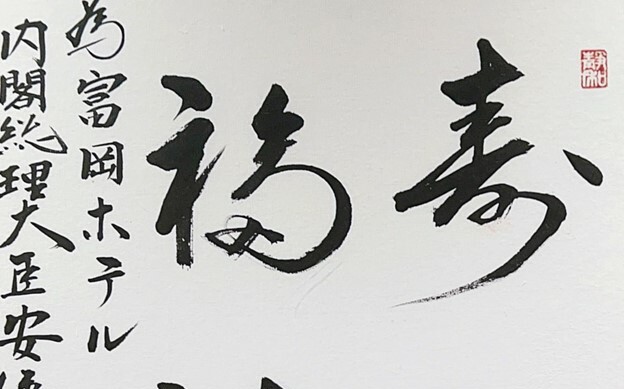 寿
福
為富岡ホテル
内閣総理大臣安